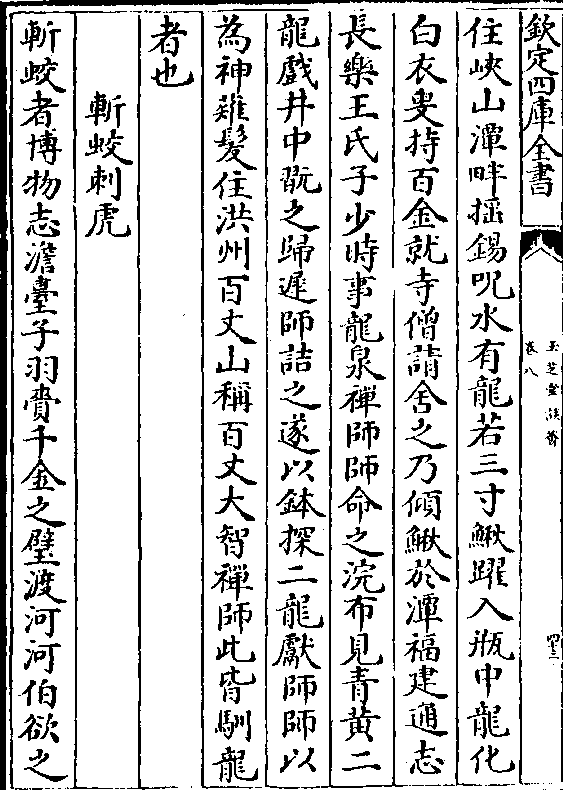 欽定四庫全書
玉芝堂談薈
卷八
住峽山潭畔揺錫呪水有龍若三寸鰍躍入瓶中龍化
白衣叟持百金就寺僧請舍之乃傾鰍於潭福建通志
長樂王氏子少時事龍泉禪師師命之浣布見青黄二
龍戲井中翫之歸遲師詰之遂以鉢探二龍獻師師以
為神薙髮住洪州百丈山稱百丈大智禪師此皆馴龍
者也
斬蛟刺虎
斬蛟者博物志澹臺子羽賫千金之璧渡河河伯欲之